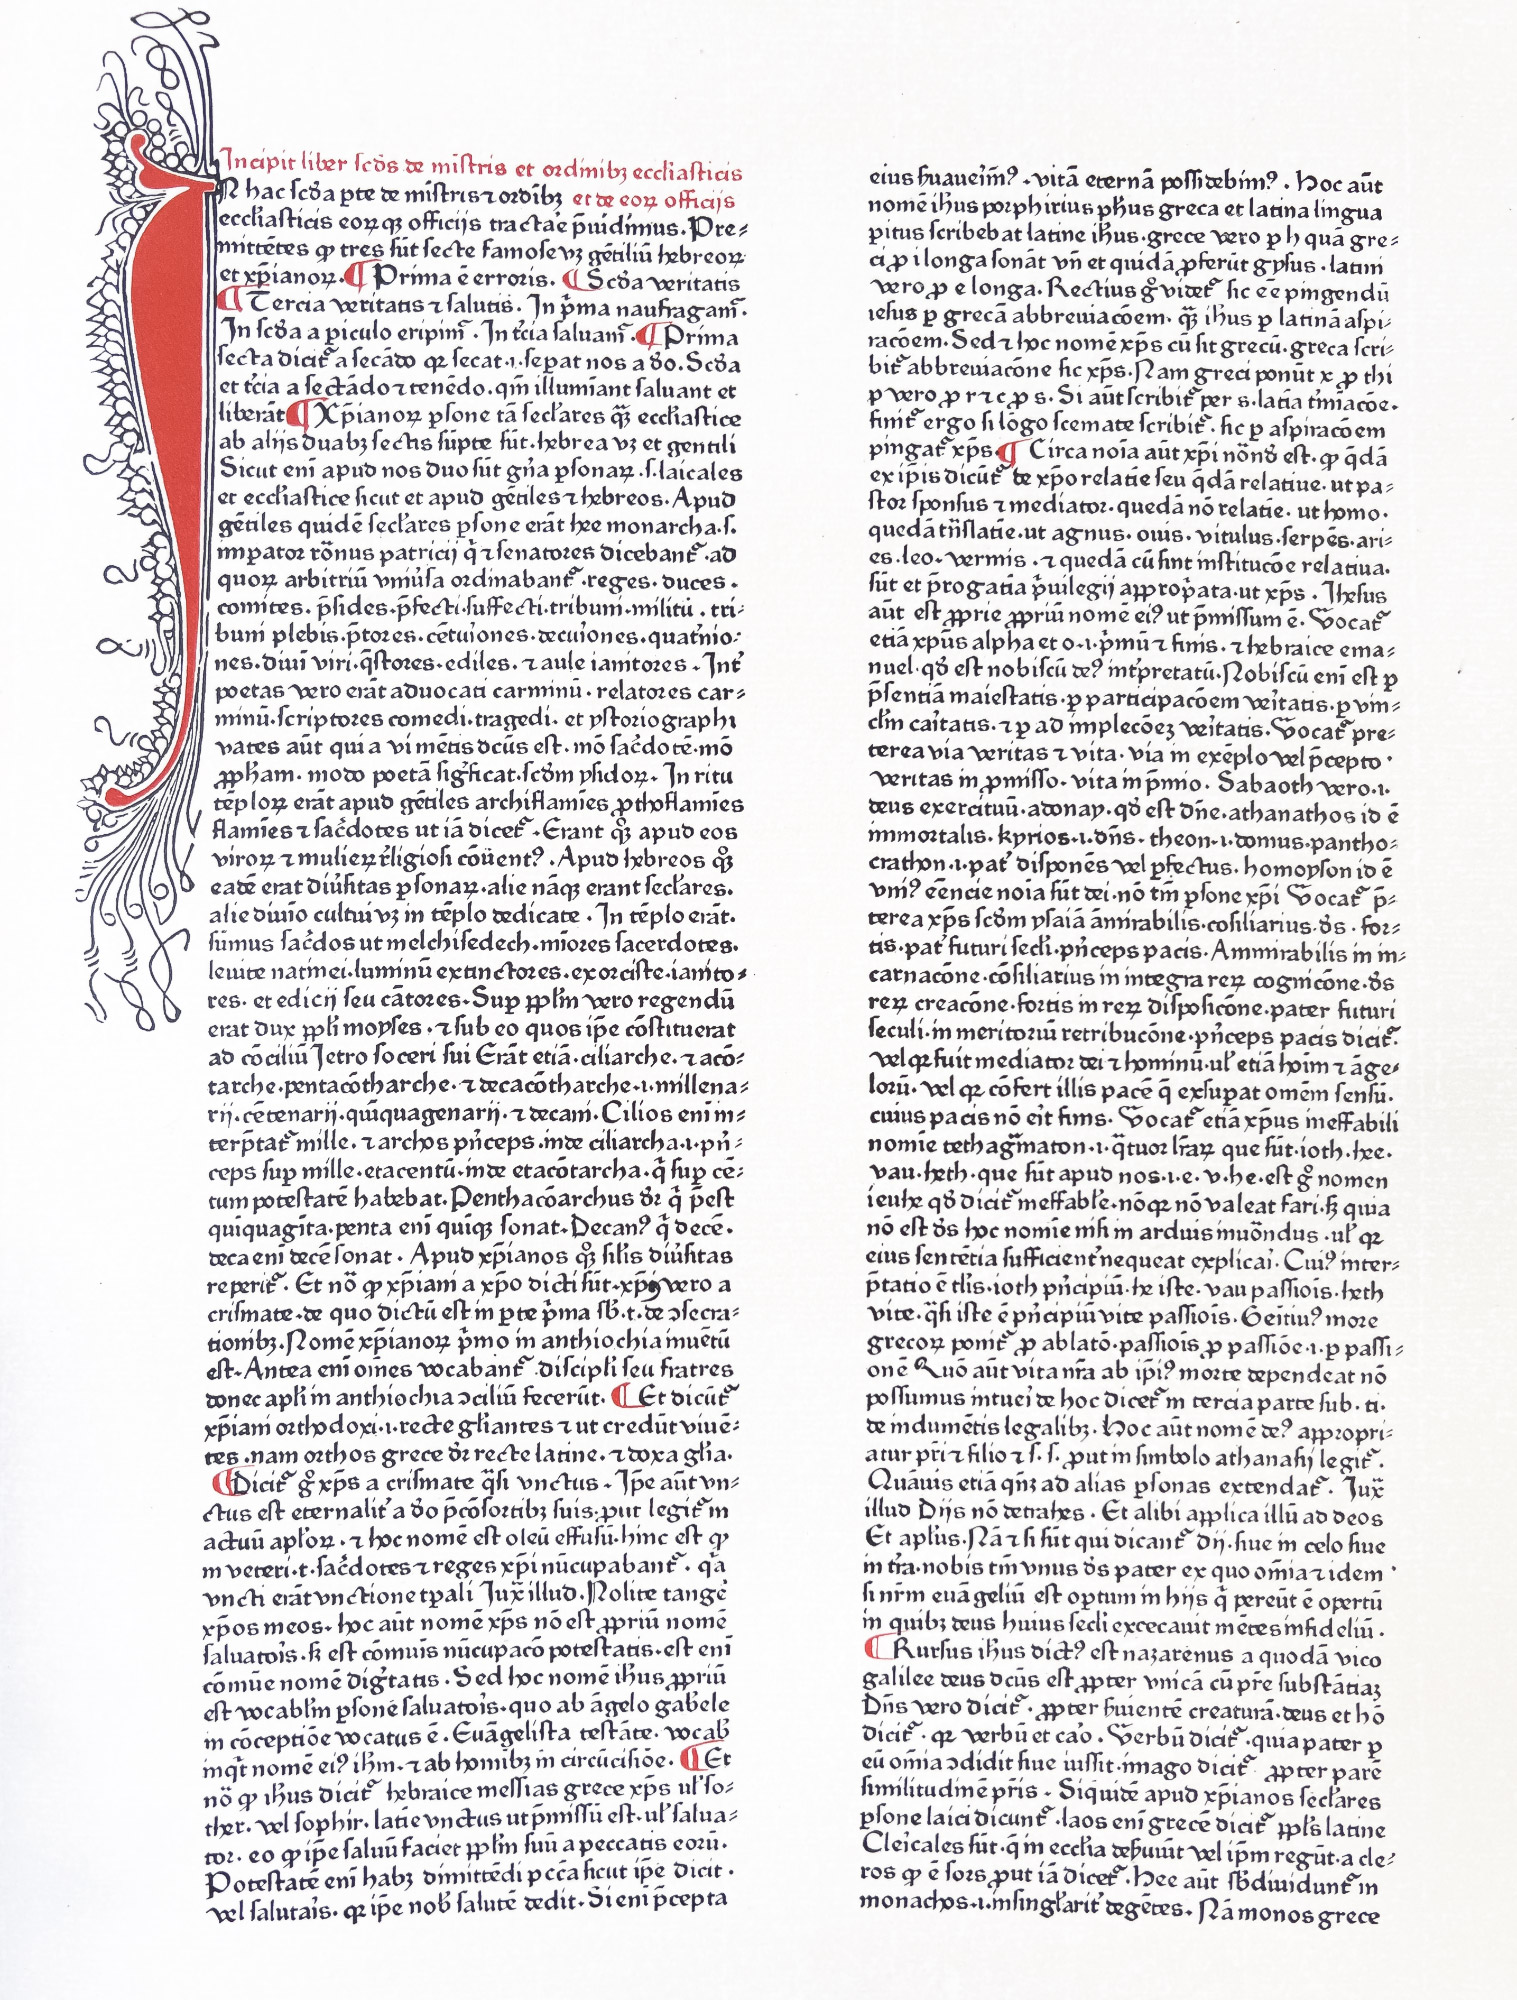 Incipit liber scd̄s de mīstris et ordinibꝫ eccl̄iasticis
IN hac scd̄a ꝑte de mīstris ⁊ ordībꝫ et de eoꝝ officijs
eccl̄iasticis eorꝙ officijs tractae p̄uidimus. Pre⸗
mittētes ꝙ tres sūt secte famose vꝫ gētiliū hebreoꝝ
et xp̄ianoꝝ. ¶ Prima ē erroris. ¶ Scd̄a veritatis
¶ Tercia veritatis ⁊ salutis. In p̄ma naufragam̄.
In scd̄a a ꝑiculo eripim̄. In t̄cia saluam̄. ¶ Prima
secta dicit᷑ a secādo qꝛ secat .ı. seꝑat nos a d̄o. Scd̄a
et t̄cia a sectādo ⁊ tenēdo. qm̄ illumīant saluant et
liberāt ¶ Xp̄ianoꝝ ꝑsone tā secl̄ares q̄ꝫ eccl̄iastice
ab alijs duabꝫ sectis sūpte sūt. hebrea vꝫ et gentili
Sicut enī apud nos duo sūt gn̄a ꝑsonaꝝ .s. laicales
et eccl̄iastice sicut et apud gētiles ⁊ hebreos. Apud
gētiles quidē secl̄ares ꝑsone erāt hee monarcha .s.
imꝑator rōnus patricij q̄ ⁊ senatores dicebant᷑ . ad
quoꝝ arbitriū vniūsa ordinabant᷑ . reges . duces .
comites . p̄sides . p̄fecti . suffecti . tribuni . militū . tri⸗
buni plebis . p̄tores . cētuıones . decuıones . quat̄nio⸗
nes . diuiı viri . q̄stores . ediles . ⁊ aule ianitores . Int̄
poetas vero erāt aduocati carminū . relatores car⸗
minū . scriptores comedi . tragedi . et ystoriographi
vates aūt qui a vi mētis dcūs est . mō sac̄dotē . mō
ꝓpham . modo poetā sigīficat . scd̄m ysidoꝝ . In ritu
tēploꝝ erāt apud gētiles archiflamīes ꝓthoflamīes
flamīes ⁊ sac̄dotes ut iā dicet᷑ . Erant qꝫ apud eos
viroꝝ ⁊ mulieꝝ r̄ligiosi cōuentꝰ . Apud hebreos qꝫ
eadē erat diūsitas ꝑsonaꝝ . alie nāqꝫ erant secl̄ares .
alie diuīo cultui vꝫ in tēplo dedicate . In tēplo erāt .
sūmus sac̄dos ut melchisedech . mīores sacerdotes .
leuite natinei . luminū extinctores . exorciste . ianito⸗
res . et edicij seu cātores . Suꝑ ꝓpl̄m vero regendū
erat dux ꝓpl̄i moyses . ⁊ sub eo quos ip̄e cōstituerat
ad cōciliū Jetro soceri sui Erāt etiā . ciliarche . ⁊ acō⸗
tarche . pentacōtharche . ⁊ decacōtharche .ı. millena⸗
rij . cētenarij . quīquagenarij . ⁊ decani . Cilios enī in⸗
terp̄tat᷑ mille . ⁊ archos pn̄ceps . inde ciliarcha .ı. pn̄⸗
ceps suꝑ mille . etacentū . inde etacōtarcha . q̄ suꝑ cē⸗
tum potestatē habebat . Penthacōarchus dr̄ q̄ p̄est
quīquagīta . penta enī quiqꝫ sonat . Decanꝰ q̄ decē .
deca enī decē sonat . Apud xp̄ianos qꝫ silis diūsitas
reperit᷑ . Et nō ꝙ xp̄iani a xp̄o dicti sūt . xp̄ꝰ vero a
crismate . de quo dictū est in ꝑte p̄ma sb̄ .t. de ↄsecra⸗
tionibꝫ . Nomē xp̄ianoꝝ p̄mo in anthiochia inuētū
est . Antea enī oīnes vocabant᷑ discipl̄i seu fratres
donec apl̄i in anthiochia ↄciliū fecerūt . ¶ Et dicūt᷑
xp̄iani orthodoxi .ı. recte gl̄iantes ⁊ ut credūt viuē⸗
tes . nam orthos grece dr̄ recte latine . ⁊ doxa gl̄ia .
¶ Dicit᷑ g̊ xp̄s a crismate q̄si vnctus . Ip̄e aūt vn⸗
ctus est eternalit̄ a d̄o p̄cōsortibꝫ suis . put legit᷑ in
actuū apl̄oꝝ . ⁊ hoc nomē est oleū effusū . hinc est ꝙ
in veteri .t. sac̄dotes ⁊ reges xp̄i nūcupabant᷑ . q̄a
vncti erāt vnctione tꝑali Juxͣ illud . Nolite tangē
xp̄os meos . hoc aūt nomē xp̄s nō est ꝓpriū nomē
saluatoıs . sꝫ est cōmuīs nūcupacō potestatis . est enī
cōmūe nomē digītatis . Sed hoc nomē ih̄us ꝓpriū
est vocabl̄m ꝑsone saluatoıs . quo ab āgelo gab̄ele
in cōceptiōe vocatus ē . Euāgelista testāte . vocab̄
inqͥt nomē eiꝰ ih̄m . ⁊ ab homībꝫ in circūcisiōe . ¶ Et
nō ꝙ ih̄us dicit᷑ hebraice messias grece xp̄s ul̄ so⸗
ther . vel sophir . latīe vnctus ut p̄missū est . ul̄ salua⸗
tor . eo ꝙ ip̄e saluū faciet ꝓpl̄m suū a peccatis eorū .
Potestatē enī habꝫ dimittēdi pccā sicut ip̄e dicit .
vel salutaıs . qꝛ ip̄e nob̄ salutē dedit . Si enī p̄cepta
eius s̄uaueīmꝰ . vitā eternā possidebimꝰ . Hoc aūt
nomē ih̄us porphirius ph̄us greca et latina lingua
pitus scribebat latine ih̄us . grece vero ꝑ h quā gre⸗
ci ꝓ i longa sonāt vn̄ et quidā ꝓferūt gysus . latini
vero ꝓ e longa . Rectius g̊ videt᷑ sic eē pingendū
iesus ꝑ grecā abbreuiacōem . qꝫ ih̄us ꝑ latinā aspi⸗
racōem . Sed ⁊ hoc nomē xp̄s cū sit grecū . greca scri⸗
bit᷑ abbreuiacōne sic xp̄s . Nam greci ponūt x ꝓ thi
p vero ꝓ r ⁊ c ꝓ s . Si aūt scribit᷑ per s . latīa t̄miacōe .
finit᷑ ergo si lōgo scemate scribit᷑ . sic ꝑ aspiracōem
pingat᷑ xp̄s . ¶ Circa noīa aūt xp̄i nōnd̄ est . ꝙ q̄dā
ex ip̄is dicūt᷑ de xp̄o relatīe seu q̄dā relatiue . ut pa⸗
stor sponsus ⁊ mediator . quedā nō relatīe . ut homo .
quedā trn̄slatīe . ut agnus . ouis . vitulus . serpēs . ari⸗
es . leo . vermis . ⁊ quedā cū sint institucōe relatiua .
sūt et p̄rogatīa p̄uilegij appropͥata . ut xp̄s . Ihesus
aūt est ꝓprie ꝓpriū nomē eiꝰ ut p̄missum ē . Vocat᷑
etiā xp̄us alpha et o .ı. p̄mū ⁊ finis . ⁊ hebraice ema⸗
nuel . qd̄ est nobiscū deꝰ int̄pretatū . Nobiscū enī est ꝑ
p̄sentiā maiestatis . ꝑ participacōem veītatis . ꝑ vin⸗
cl̄m caītatis . ⁊ ꝑ ad implecōeꝫ veītatis . Vocat᷑ pre⸗
terea via veritas ⁊ vita . via in exēplo vel p̄cepto .
veritas in ꝓmisso . vita in p̄mio . Sabaoth vero .ı.
deus exercituū . adonay . qd̄ est dn̄e . athanathos id ē
immortalis . kyrios .ı. dn̄s . theon .ı. domus . pantho⸗
crathon .ı. pat̄ disponēs vel ꝑfectus . homoyson id ē
vniꝰ eēncie noīa sūt dei . nō tm̄ ꝑsone xp̄i Vocat᷑ p̄⸗
terea xp̄s scd̄m ysaiā āmirabilis . cōsiliarius . d̄s . for⸗
tis . pat̄ futuri secl̄i . pn̄ceps pacis . Ammirabilis in in⸗
carnacōne . cōsiliarius in integra reꝝ cognicōne . d̄s
reꝝ creacōne . fortis in reꝝ disposicōne . pater futuri
seculi . in meritoriū retribucōne . pn̄ceps pacis dicit᷑ .
vel qꝛ fuit mediator dei ⁊ hominū . ul̄ etiā hoīm ⁊ āge⸗
lorū . vel qꝛ cōfert illis pacē q̄ exsuꝑat omēm sensū .
cuius pacis nō eīt finis . Vocat᷑ etiā xp̄us ineffabili
nomīe tethagͣmaton .ı. qͣtuor lr̄aꝝ que sūt . ioth . hee .
vau . heth . que sūt apud nos .ı. e . v . he . est g̊ nomen
ieuhe qd̄ dicit᷑ ineffabl̄e . nōqꝛ nō valeat fari . sꝫ quia
nō est d̄s hoc nomīe nisi in arduis inuōndus . ul̄ qꝛ
eius sentētia sufficient᷑ nequeat explicaı . Cuiꝰ inter⸗
p̄tatio ē tl̄is . ioth pn̄cipiū . he iste . vau passiois . heth
vite . q̄si iste ē pn̄cipiū vite passiois . Geītiuꝰ more
grecoꝝ ponit᷑ ꝓ ablatō . passiois ꝓ passiōe .ı. ꝑ passi⸗
onē Quō aūt vita nr̄a ab ip̄iꝰ morte dependeat nō
possumus intueı de hoc dicet᷑ in tercia parte sub . ti .
de indumētis legalibꝫ . Hoc aūt nomē deꝰ appropri⸗
atur pr̄i ⁊ filio ⁊ s . s . ꝓut in simbolo athanasij legit᷑ .
Quāuis etiā qn̄ꝫ ad alias ꝑsonas extendat᷑ . Juxͣ
illud Dijs nō detrahes . Et alibi applica illū ad deos
Et apl̄us . Nā ⁊ si sūt qui dicant᷑ dij . siue in celo siue
in tr̄a . nobis tm̄ vnus d̄s pater ex quo om̄ia ⁊ idem .
si nr̄m euāgeliū est opertum in hijs q̄ pereūt ē opertū
in quibꝫ deus huius secl̄i excecauit mētes infideliū .
¶ Rursus ih̄us dictꝰ est nazarenus a quodā vico
galilee deus dcūs est ꝓpter vnicā cū pr̄e substātiaꝫ
Dn̄s vero dicit᷑ . ꝓpter s̄uientē creaturā . deus et hō
dicit᷑ . qꝛ verbū et caō . Verbū dicit᷑ . quia pater ꝑ
eū om̄ia ↄdidit siue iussit . imago dicit᷑ ꝓpter parē
similitudinē pr̄is . Siquidē apud xp̄ianos secl̄ares
ꝑsone laici dicunt᷑ . laos enī grece dicit᷑ ꝓpl̄s latine
Cleıcales sūt . q̄ in eccl̄ia des̄uiūt vel ip̄m regūt . a cle⸗
ros ꝙ ē sors ꝓut iā dicet᷑ . Hee aūt sb̄diuidunt᷑ in
monachos .ı. insingl̄arit̄ degētes . Nā monos grece